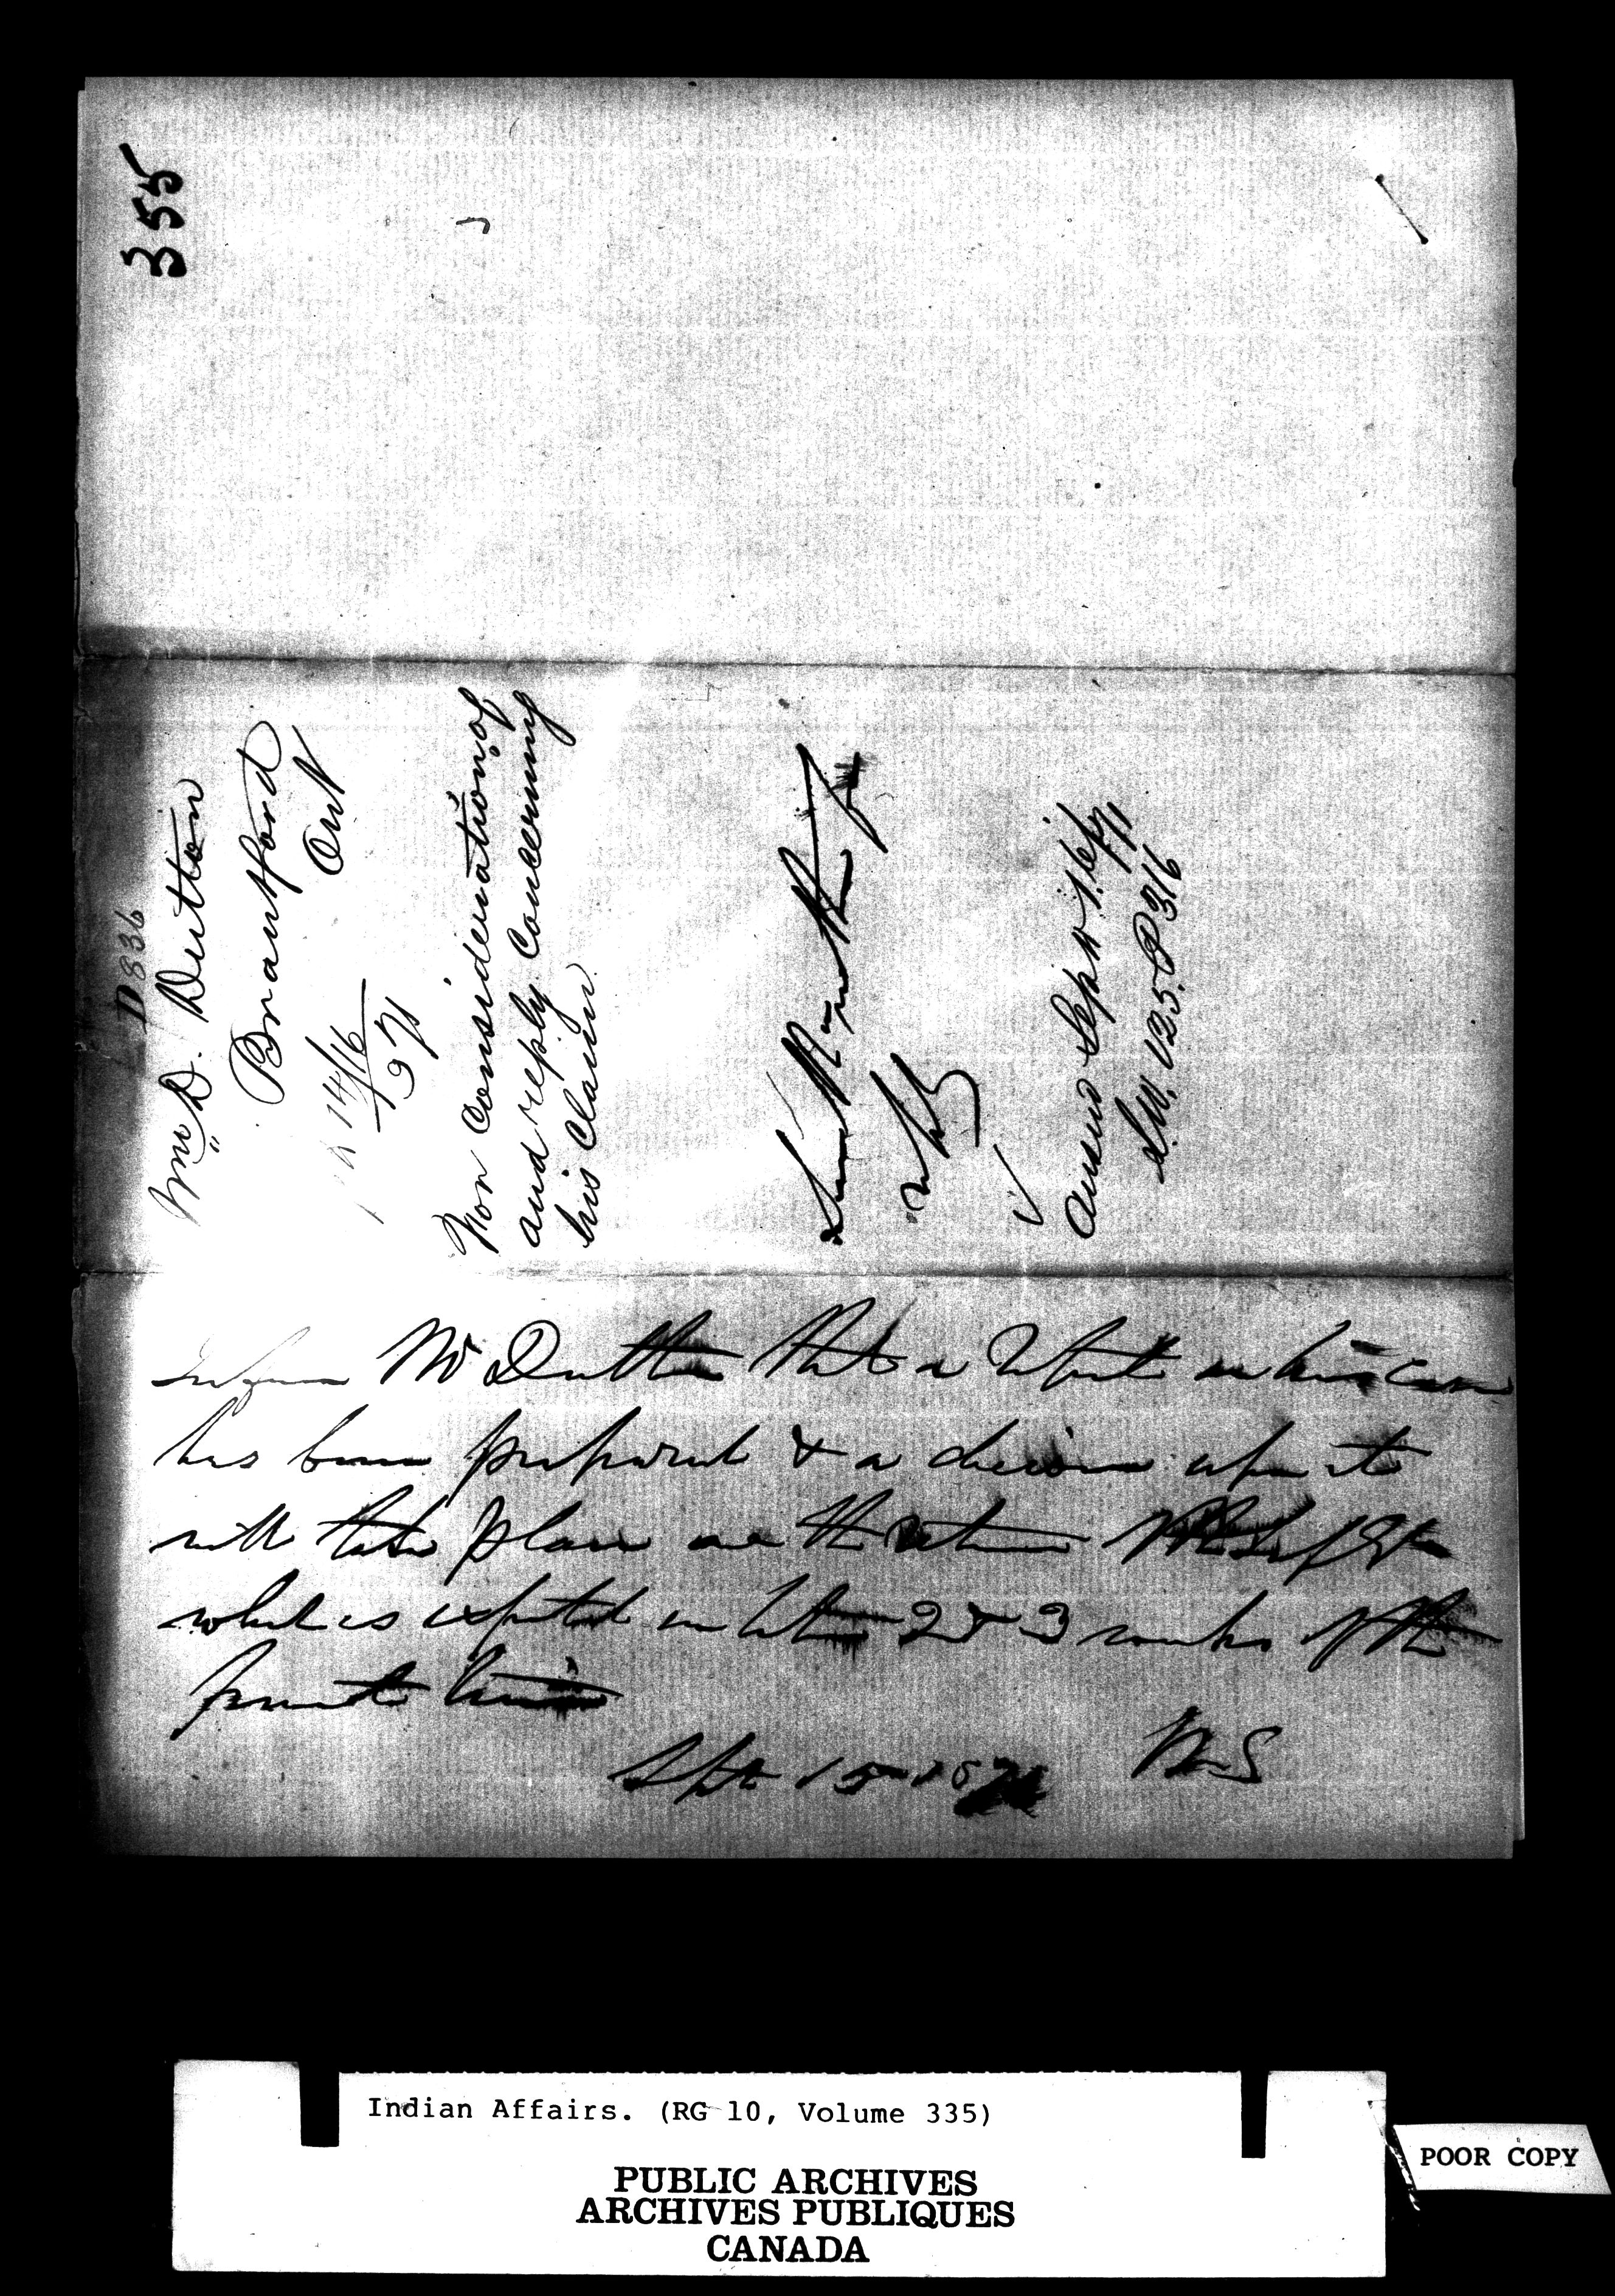 355
D836
Mr. D. Dutton
Brantford
Ont
14/16
9 71
Non Consideration of
and reply Concerning
his Claim
Ansd Sept 16/71
L.W. 125. P 316
Inform Mr Dutton that a report in his case
has been prepared & a decision upon it
will take place on the return of the
which is expected in between 2 & 3 weeks of the
present time
Sept 15 1871
Indian Affairs. (RG 10, Volume 335)
PUBLIC ARCHIVES
ARCHIVES PUBLIQUES
CANADA
POOR COPY